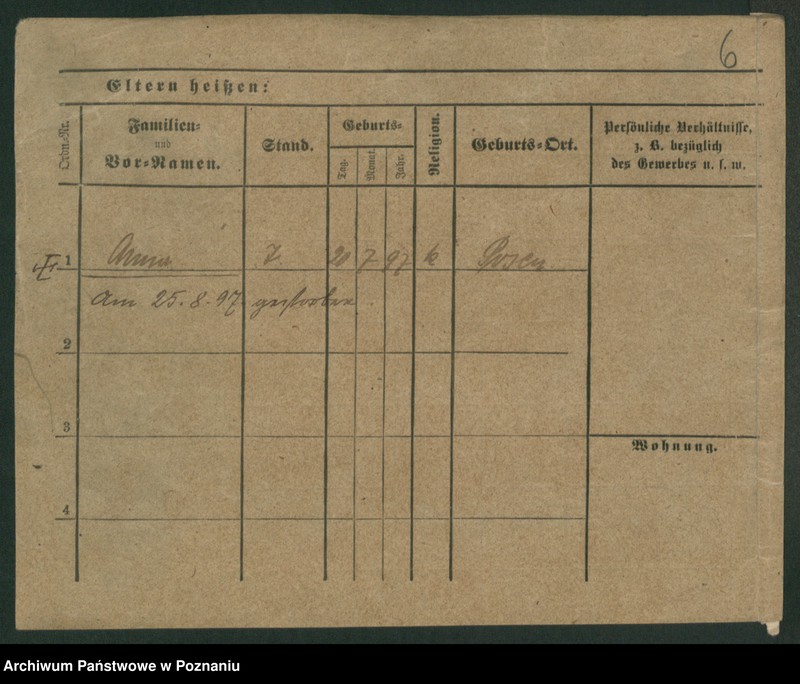 6
Eltern heißen:
Ordn.-Nr.
Familien-
und
Vor-Namen.
Stand.
Geburts-
Tag.
Monat.
Jahr.
Religion.
Geburts-Ort.
Persönliche Verhältnisse,
z. B. bezüglich
des Gewerbes u. s. w.
1 Anna T. 20 7 97 k Posen
Am 25. 8. 97 gestorben
2
3
Wohnung.
4
Archiwum Państwowe w Poznaniu